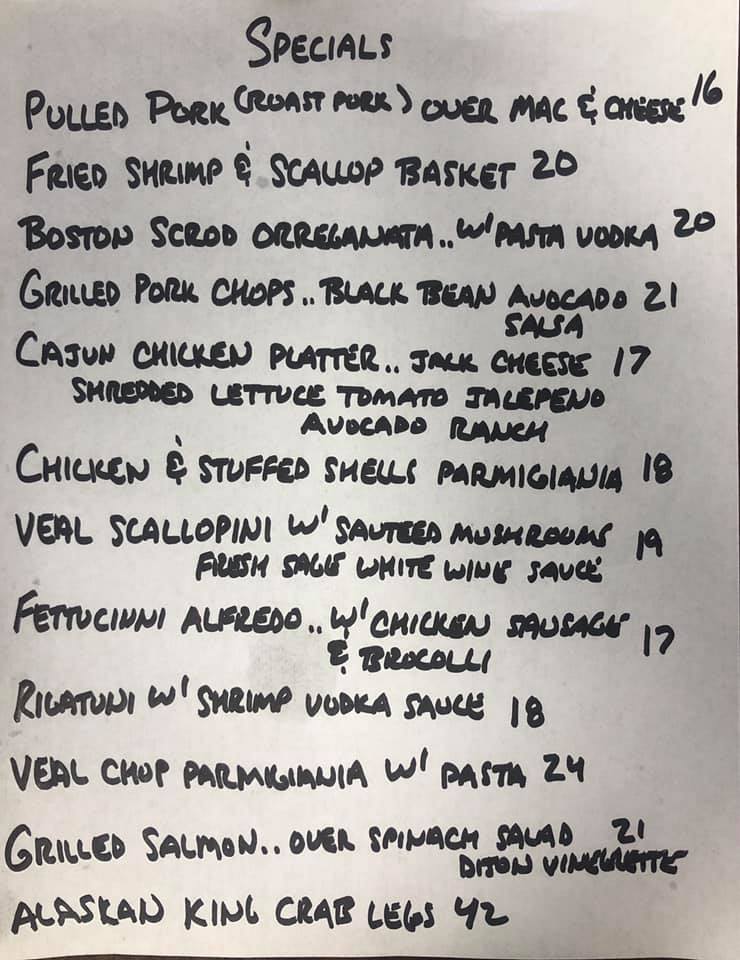 SPECIALS
PULLED PORK (ROAST PORK) OVER MAC & CHEESE 16
FRIED SHRIMP & SCALLOP BASKET 20
BOSTON SCROD ORREGANATA.. W/ PASTA VODKA 20
GRILLED PORK CHOPS.. BLACK BEAN AVOCADO 21
SALSA
CAJUN CHICKEN PLATTER.. JACK CHEESE 17
SHREDDED LETTUCE TOMATO JALEPENO
AVOCADO RANCH
CHICKEN & STUFFED SHELLS PARMIGIANIA 18
VEAL SCALLOPINI W/ SAUTEED MUSHROOMS 19
FRESH SAGE WHITE WINE SAUCE
FETTUCINNI ALFREDO.. W/ CHICKEN SAUSAGE 17
& BROCOLLI
RIGATONI W/ SHRIMP VODKA SAUCE 18
VEAL CHOP PARMIGIANIA W/ PASTA 24
GRILLED SALMON.. OVER SPINACH SALAD 21
DIJON VINEGRETTE
ALASKAN KING CRAB LEGS 42